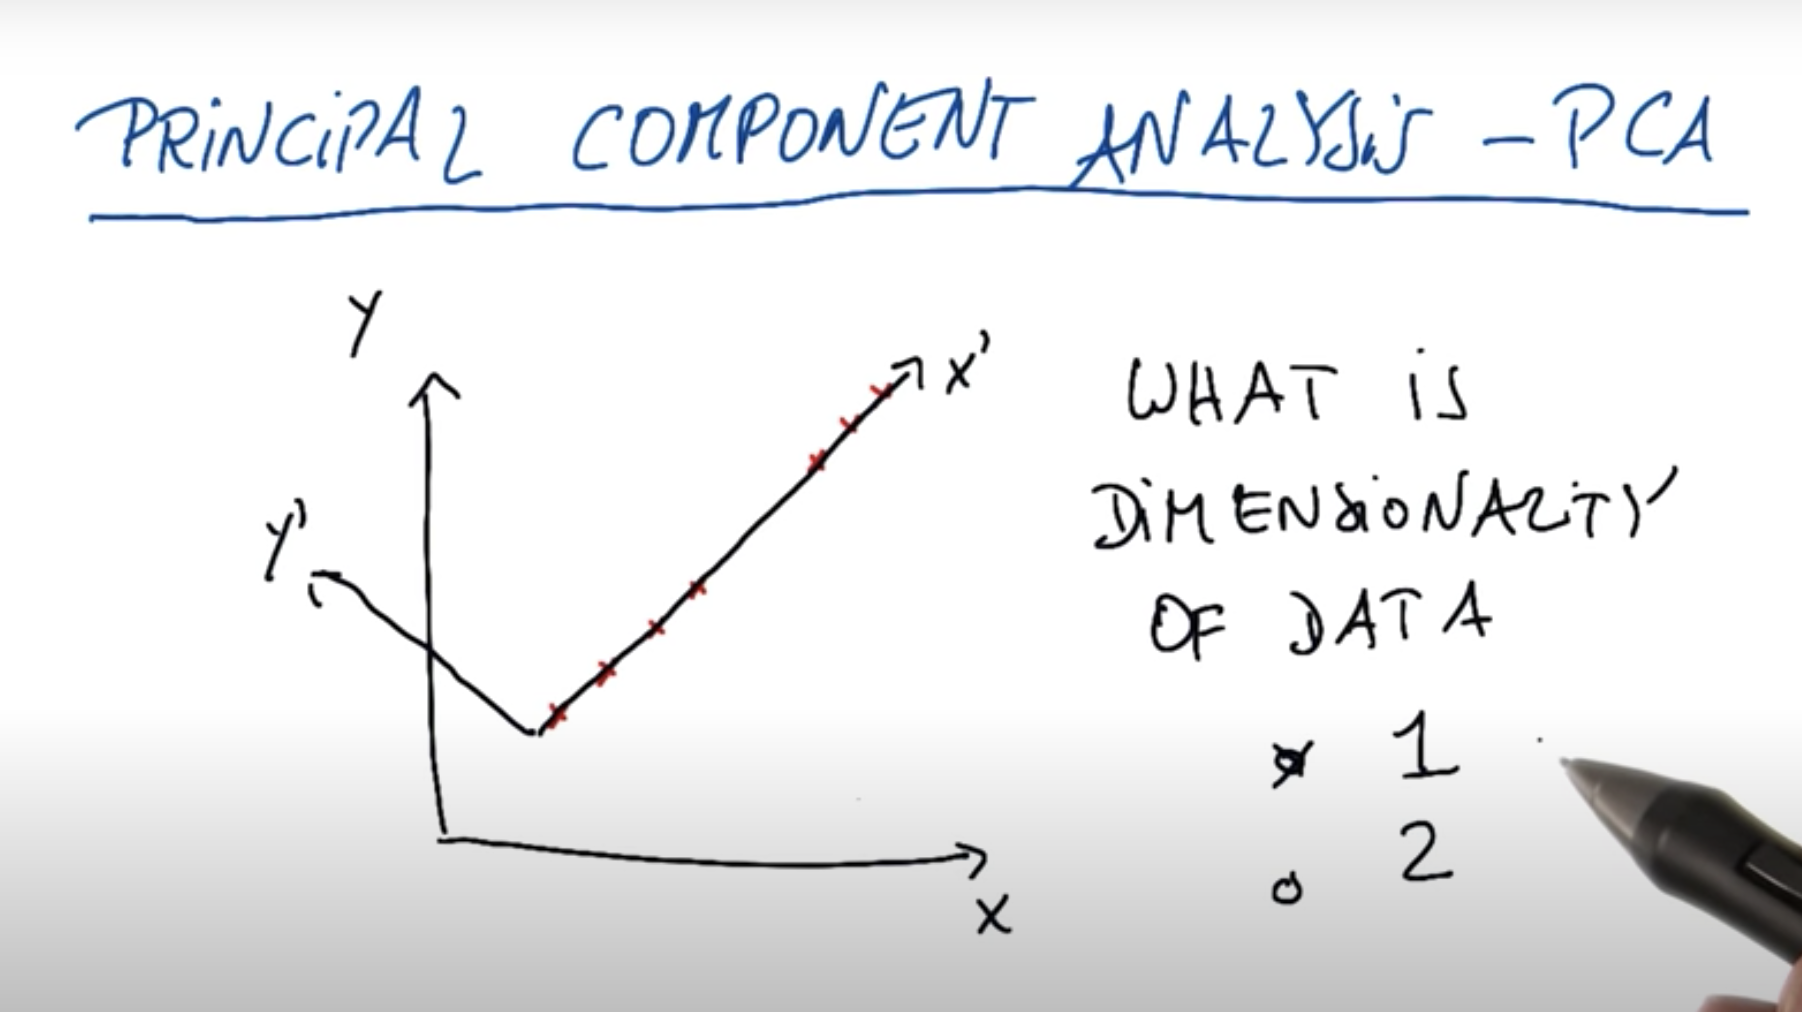 PRINCIPAL COMPONENT ANALYSIS - PCA
Y
X'
Y'
X
WHAT IS
DIMENSIONALITY
OF DATA
1
2